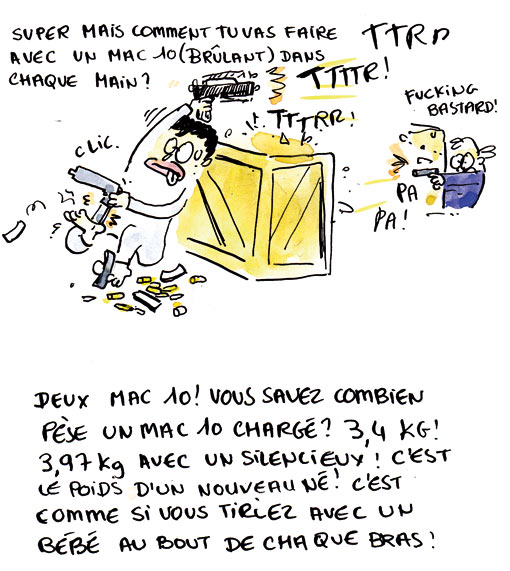 SUPER MAIS COMMENT TU VAS FAIRE
AVEC UN MAC 10 (BRÛLANT) DANS
CHAQUE MAIN?
TTRR
TTTTR!
TTTRR!
FUCKING
BASTARD!
CLIC.
PA
PA!
DEUX MAC 10! VOUS SAVEZ COMBIEN
PÈSE UN MAC 10 CHARGÉ? 3,4 KG!
3,97 kg AVEC UN SILENCIEUX! C'EST
LE POIDS D'UN NOUVEAU NÉ! C'EST
COMME SI VOUS TIRIEZ AVEC UN
BÉBÉ AU BOUT DE CHAQUE BRAS!